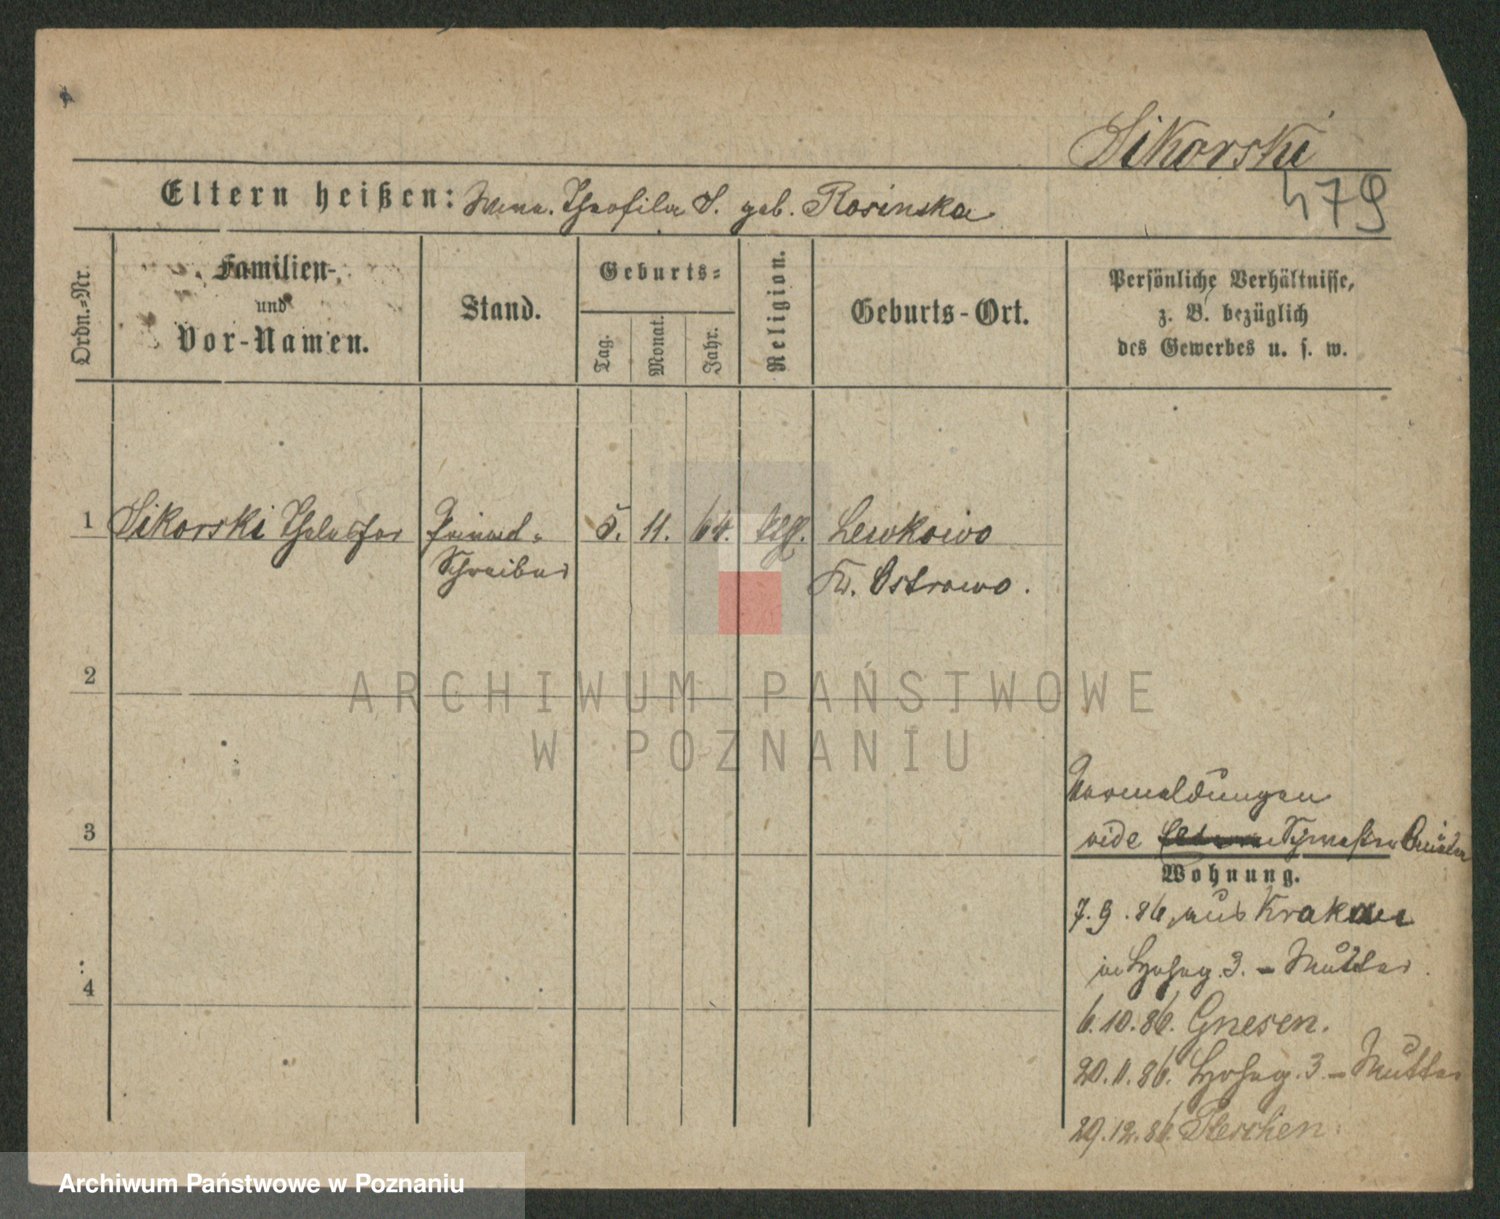 Sikorski
479
Eltern heißen: Wwe. Theofila S. geb. Rosinska
Ordn.-Nr.
Familien-
und
Vor-Namen.
Stand.
Geburts-
Tag.
Monat.
Jahr.
Religion.
Geburts-Ort.
Persönliche Verhältnisse,
z. B. bezüglich
des Gewerbes u. s. w.
1 Sikorski Thelesfor
Schreiber
5. 11. 64. Lewkowo
Kr. Ostrowo.
2
ARCHIWUM PAŃSTWOWE
W POZNANIU
3
4
Vormeldungen
vide
Wohnung.
7.9.86 aus Krakau
3. - Mutter
6.10.86. Gnesen.
20.11.86. 3. - Mutter
29.12.86. Pleschen.
Archiwum Państwowe w Poznaniu